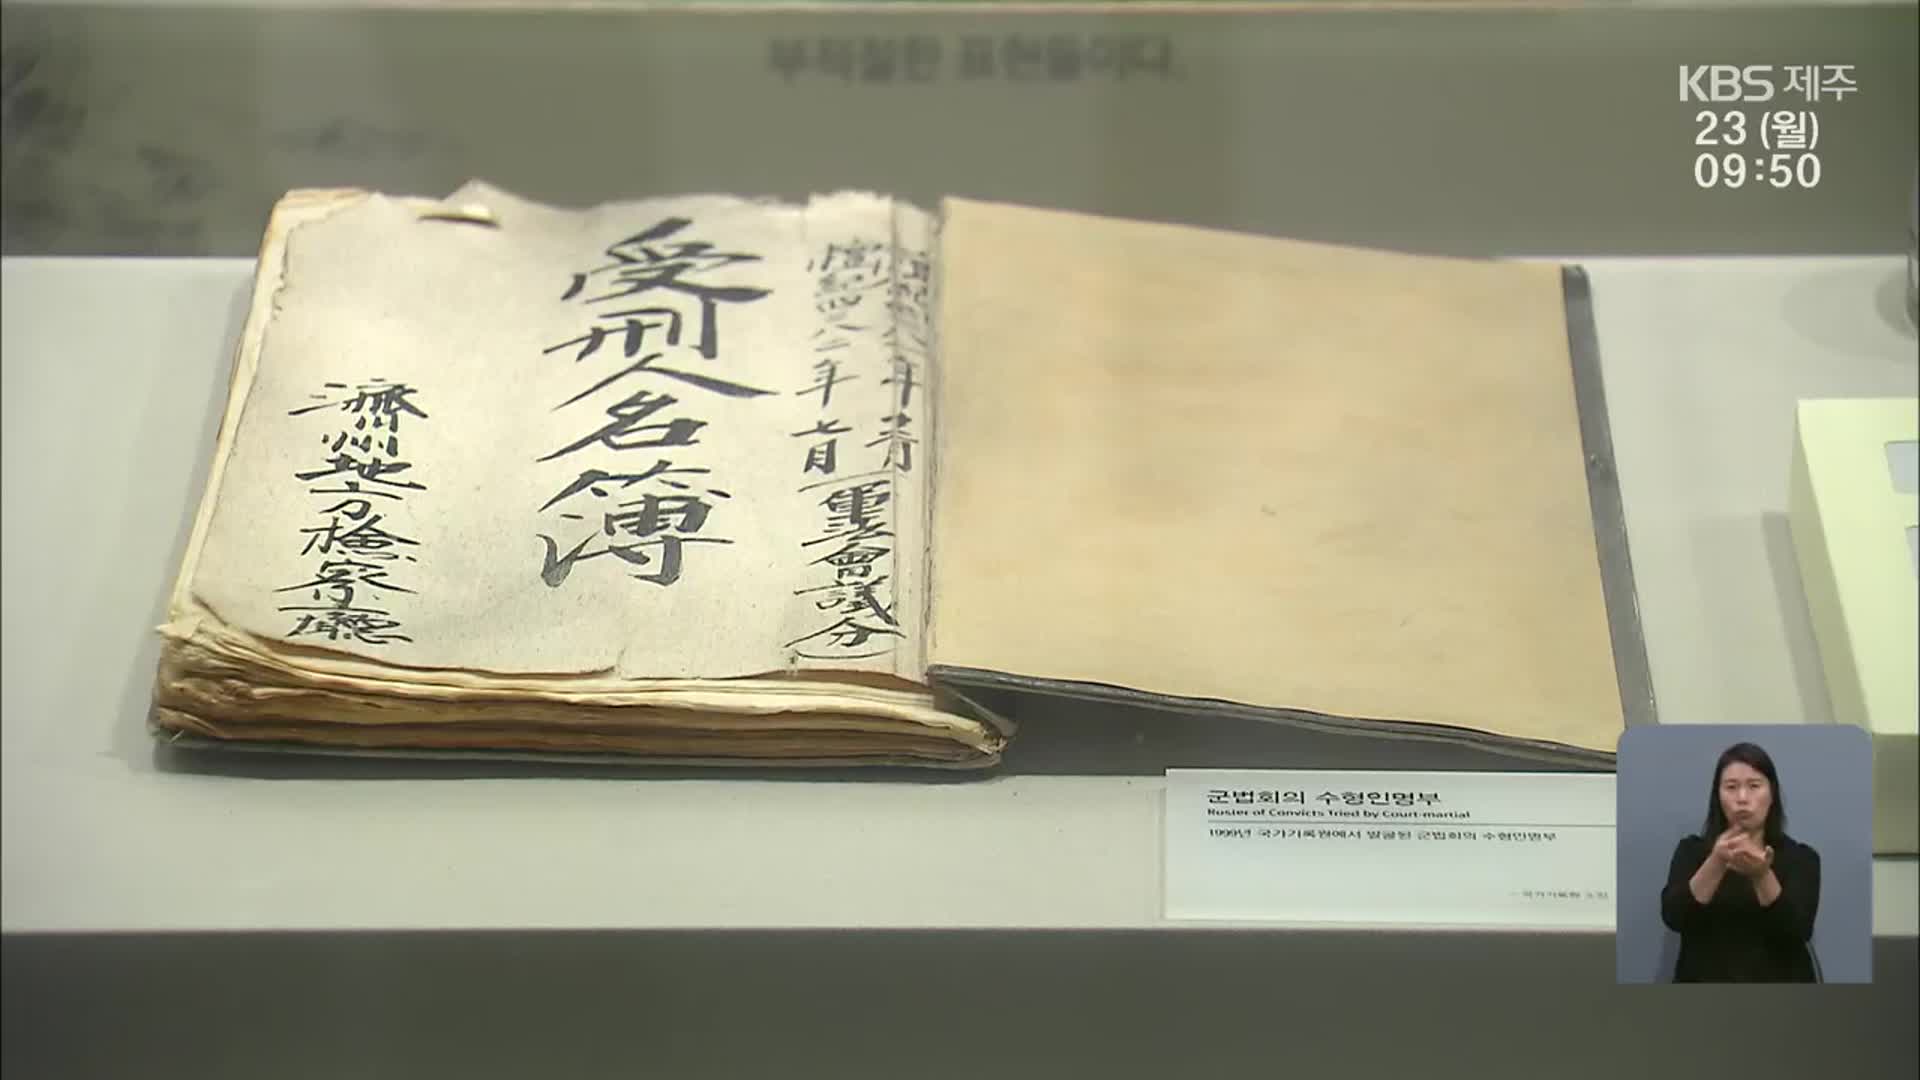 부적절한 표현들이다.
KBS 제주
23 (월)
09:50
檀紀四二八二年七月
(軍法會議分)
受刑人名簿
濟州地方檢察廳
군법회의 수형인명부
Roster of Convicts Tried by Court-martial
1999년 국가기록원에서 발굴된 군법회의 수형인명부